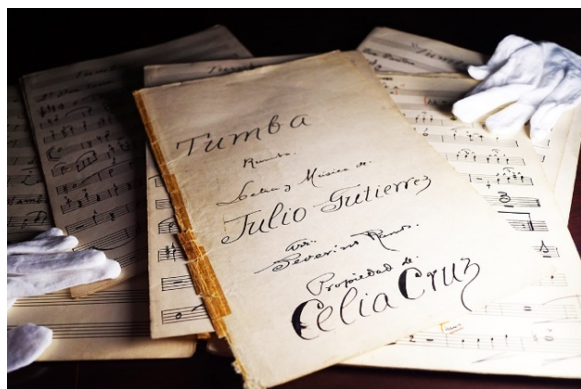 Tumba
Rumba
Letra y Música de:
Julio Gutierrez
Arr:
Severino Ramos.
Propiedad de:
Celia Cruz